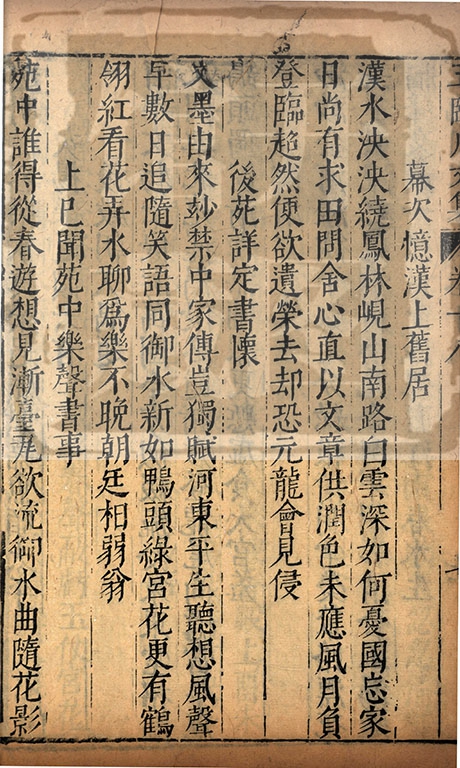 王臨川文集 卷十八
幕次憶漢上舊居
漢水泱泱繞鳳林峴山南路白雲深如何憂國忘家
日尚有求田問舍心直以文章供潤色未應風月負
登臨超然便欲遺榮去却恐元龍會見侵
後苑詳定書懷
文墨由來玅禁中家傳豈獨賦河東平生聽想風聲
早數日追隨笑語同御水新如鴨頭綠宮花更有鶴
翎紅看花弄水聊爲樂不晚朝廷相弱翁
上巳聞苑中樂聲書事
苑中誰得從春遊想見漸臺瓦欲流御水曲隨花影